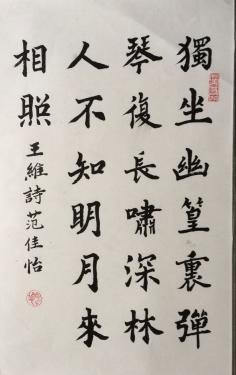 獨坐幽篁裏彈
琴復長嘯深林
人不知明月來
相照
王維詩范佳怡